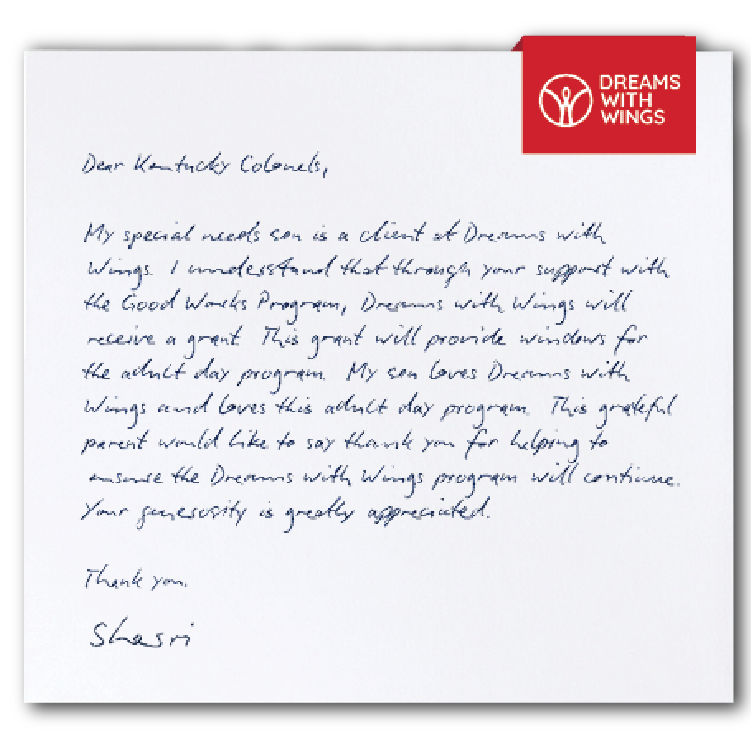 DREAMS
WITH
WINGS
Dear Kentucky Colonels,
My special needs son is a client at Dreams with
Wings. I understand that through your support with
the Good Works Program, Dreams with Wings will
receive a grant. This grant will provide windows for
the adult day program. My son loves Dreams with
Wings and loves this adult day program. This grateful
parent would like to say thank you for helping to
ensure the Dreams with Wings program will continue.
Your generosity is greatly appreciated.
Thank you.
Shasri